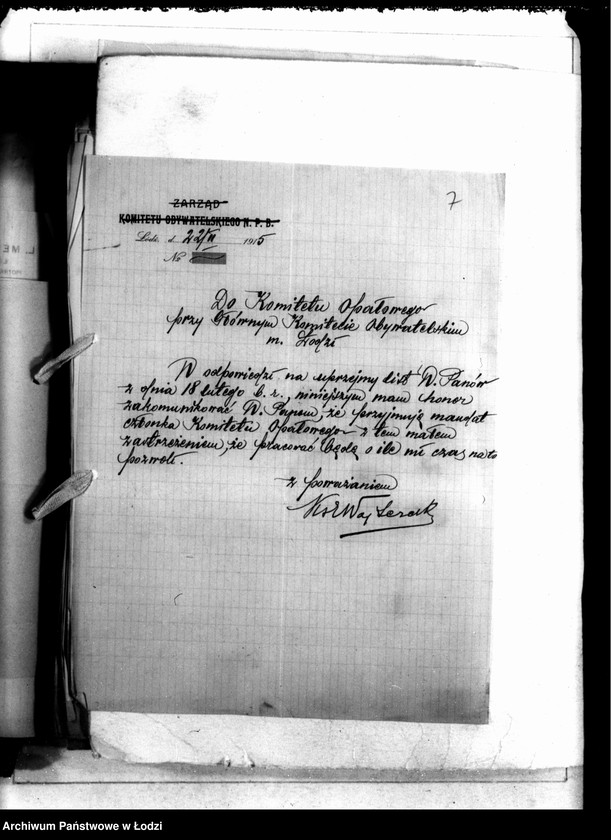 7
ZARZĄD
KOMITETU OBYWATELSKIEGO N. P. B.
Łódź, d. 22/II 1915
No
Do Komitetu Opałowego
przy Głównym Komitecie Obywatelskim
m. Łodzi
W odpowiedzi na uprzejmy list W. Panów
z dnia 18 lutego b. r., niniejszym mam honor
zakomunikować W. Panom, że przyjmuję mandat
członka Komitetu Opałowego z tem małem
zastrzeżeniem, że pracować będę, o ile mi czas na to
pozwoli.
z poważaniem
Archiwum Państwowe w Łodzi